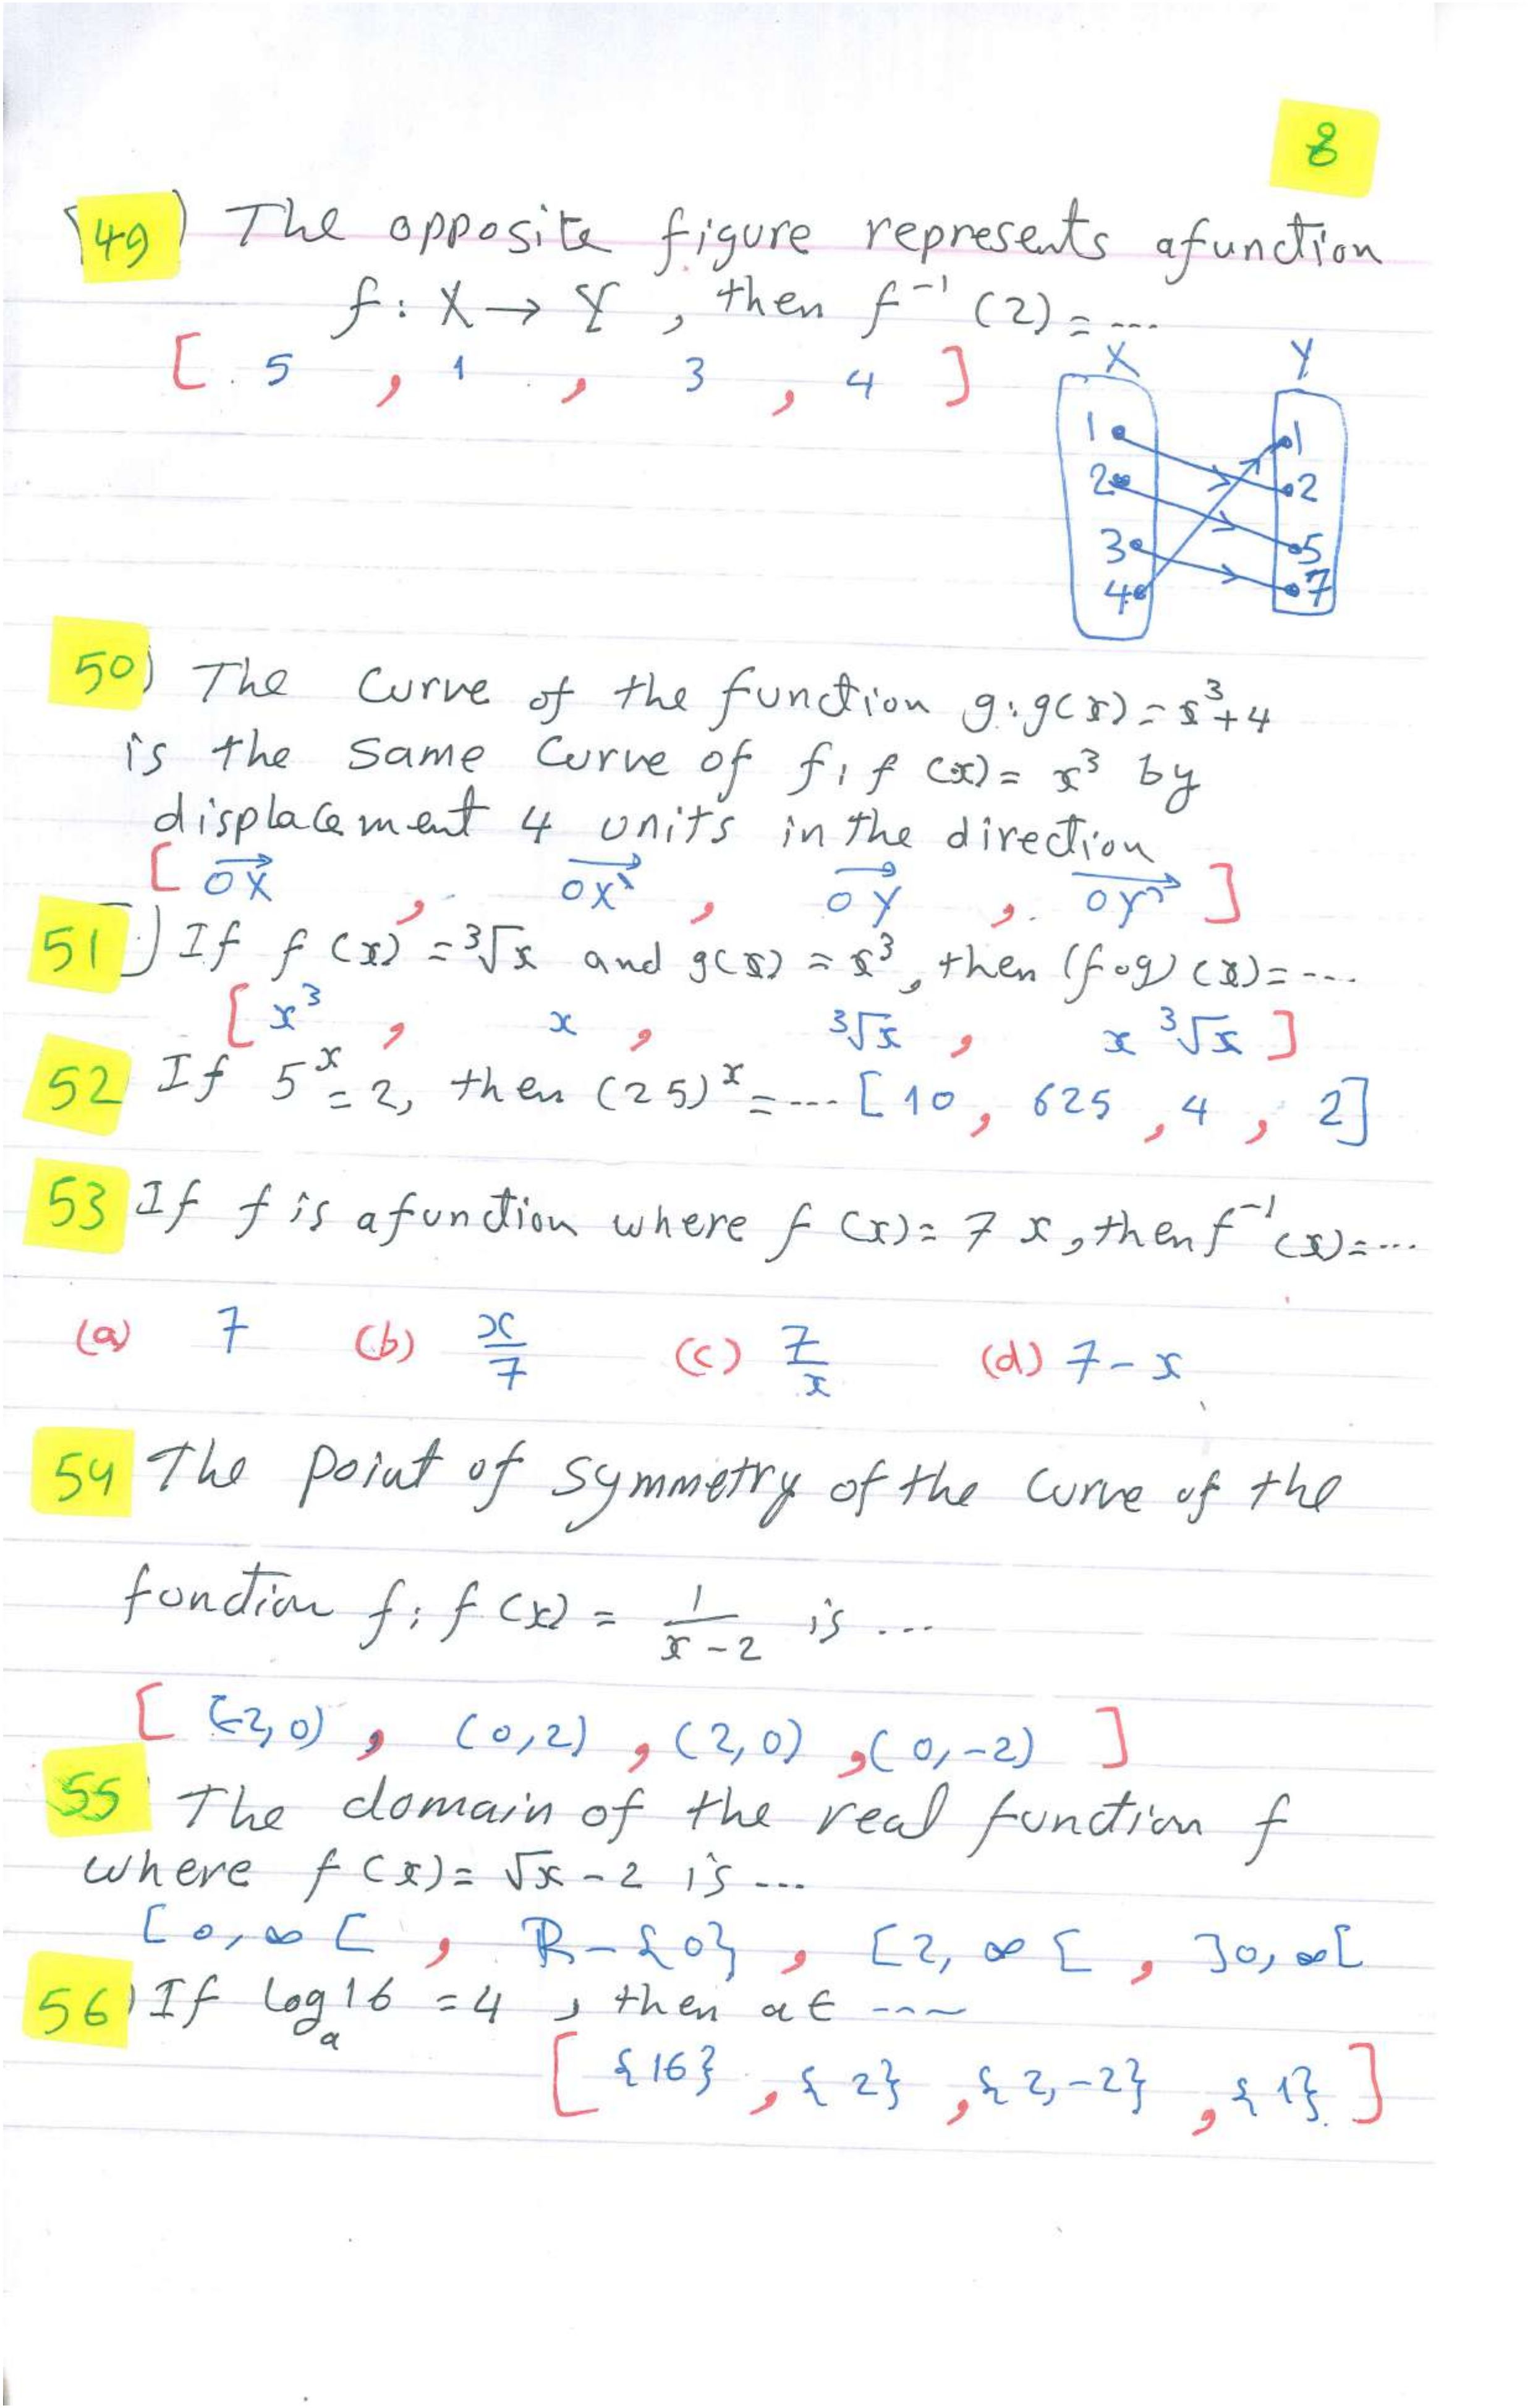 8
49) The opposite figure represents afunction
f: X → Y, then f⁻¹(2) = ...
[ 5 , 1 , 3 , 4 ]
X Y
1 1
2 2
3 5
4 7
50) The Curve of the function g: g(x) = x³+4
is the same Curve of f, f(x) = x³ by
displacement 4 units in the direction
[ OX⃗ , OX'⃗ , OY⃗ , OY'⃗ ]
51) If f(x) = ³√x and g(x) = x³, then (fog)(x) = ....
[ x³ , x , ³√x , x ³√x ]
52 If 5ˣ = 2, then (25)ˣ = ... [10, 625, 4, 2]
53 If f is afunction where f(x) = 7x, then f⁻¹(x) = ...
(a) 7 (b) x/7 (c) 7/x (d) 7-x
54 The point of symmetry of the curve of the
fonction f: f(x) = 1/(x-2) is ...
[ (-2,0) , (0,2) , (2,0) , (0,-2) ]
55 The domain of the real function f
where f(x) = √x - 2 is ...
[0, ∞[ , R-{0} , [2, ∞[ , ]0, ∞[
56) If logₐ16 = 4 , then a ∈ ----
[ {16} , {2} , {2,-2} , {1} ]